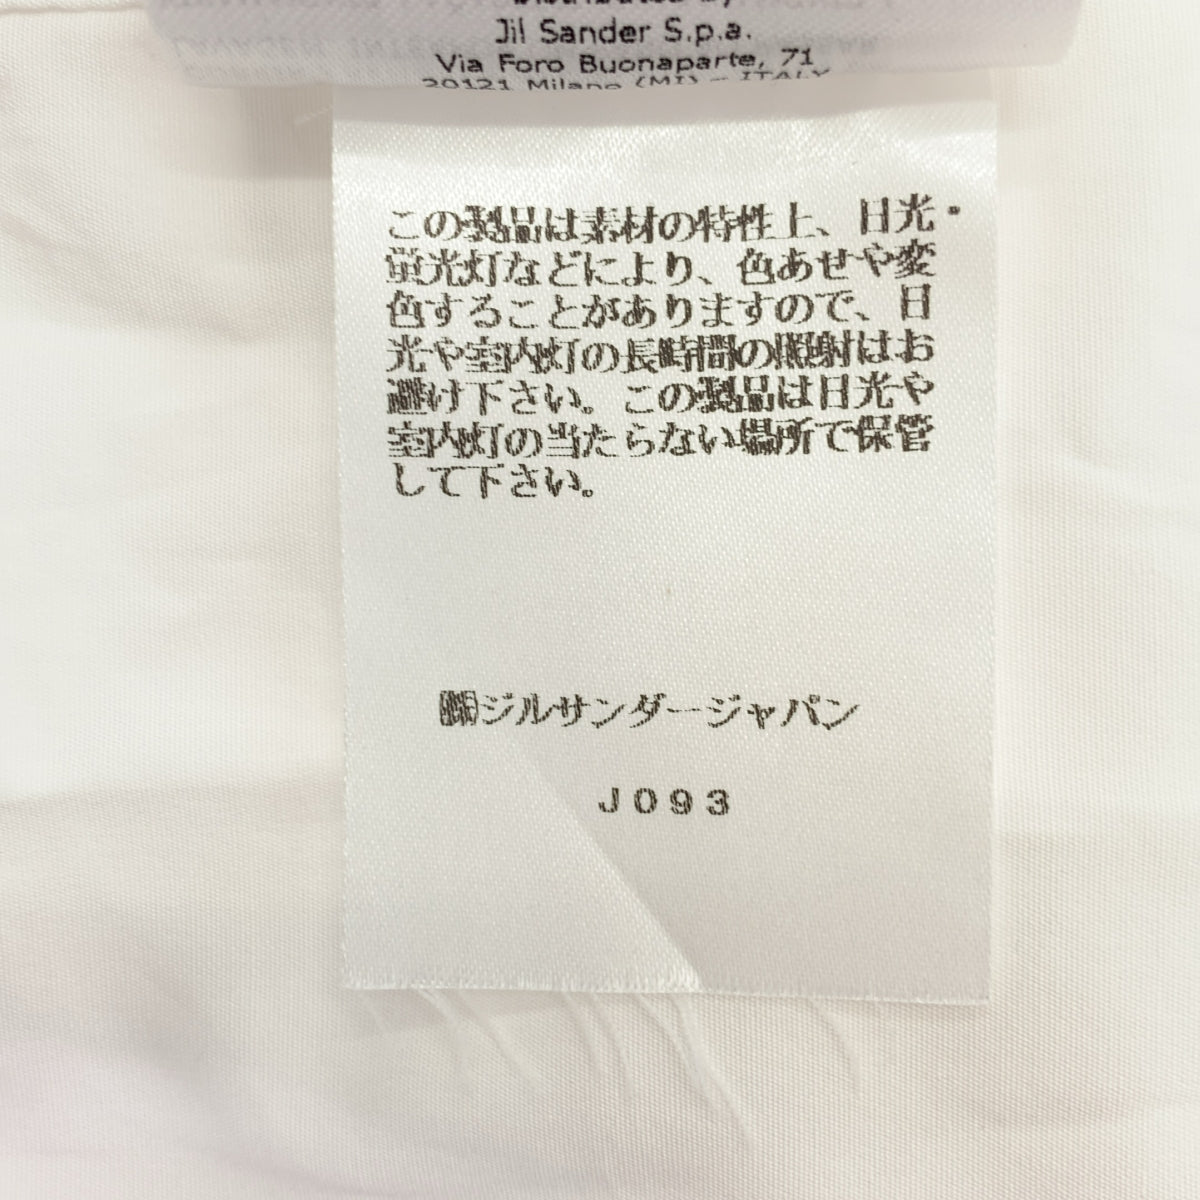 Jil Sander S.p.a.
Via Foro Buonaparte, 71
20121 Milano (MI) - ITALY
この製品は素材の特性上、日光・
蛍光灯などにより、色あせや変
色することがありますので、日
光や室内灯の長時間の照射はお
避け下さい。この製品は日光や
室内灯の当たらない場所で保管
して下さい。
㈱ジルサンダージャパン
J093